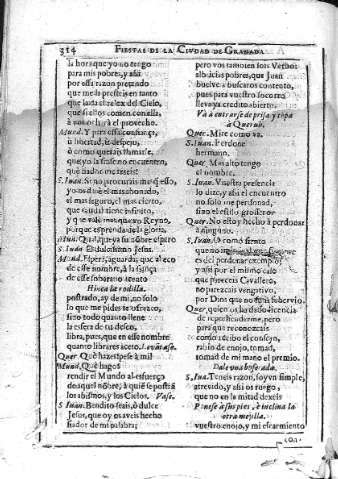 314 FIESTAS DE LA CIUDAD DE GRANADA
la hora que yo no tengo
para mis pobres, y assi
por essa razon pretendo
que me la presteis en tanto
que el Cielo,
que si ellos comen con ella,
à vos os la el provecho.
Mund. Y
ù libertad, ù despejo,
ò como querais llamarle,
que yo la frasse no encuentro,
què dadme me teneis?
S. Iuan. Si no procurais mas q̃ esso,
yo os darè el mas abonado,
el mas seguro, el mas cierto,
que caudal tiene infinito,
y que vale mas que un Reyno,
porque es prenda de la gloria.
Mun. Quiẽ, que ya su nõbre espero?
S. Iuan. El dulcissimo Jesus.
Mund. Esperà, aguarda; que al eco
de esse nombre, à la fiança
de esse soberano acento
Hinca la rodilla.
postrado, ay de mi, no solo
lo que me pides te ofrezco,
sino todo quanto llena
la esfera de tu deseo.
libra, pues, que en esse nombre
quanto librares aceto. Levantase.
Quer. Què hazes? pese à mil
Mund. Què hago?
rendir el Mundo al esfuerço
de aquel nõbre, à quiẽ se postrã
los abismos, y los Cielos. Vase.
S. Iuan. Bendito seais, ò dulce
Jesus, que oy os aveis hecho
fiador de mi palabra;
pero vos tambien sois Verbo:
albricias pobres, que Juan
buelve à buscaros contento,
pues para vuestro socorro
lleva ya credito abierto.
Và à entrarse de prisa, y topa
à Querub.
Quer. Mire como va.
S. Iuan. Perdone
hermano.
Quer. Mas alto tengo
el nombre.
S. Iuan. Vuestra presencia
lo dize, y assi el encuentro
no solo me perdonad,
sino el estilo grossero.
Quer. No estoy hecho à perdonar
à ninguno.
S. Iuan. O como siento
que no
es de perderar exemplo,
y assi por el mismo caso
que pareceis Cavallero,
no parezcais vengativo,
por Dios que no seais sobervio.
Quer. quien os ha dado licencia
de reprehenderme, pero
para que reconozcais
como recibo el consejo,
ràbio de enojo, tomad,
tomad de mi mano el premio.
Dale una bofetada.
S. Iua. Teneis razon, soy un simple,
atrevido, y assi os ruego,
que no en la mitad dexeis
Ponese à sus pies, è inclina la
otra mexilla.
vuestro enojo, y mi escarmiento